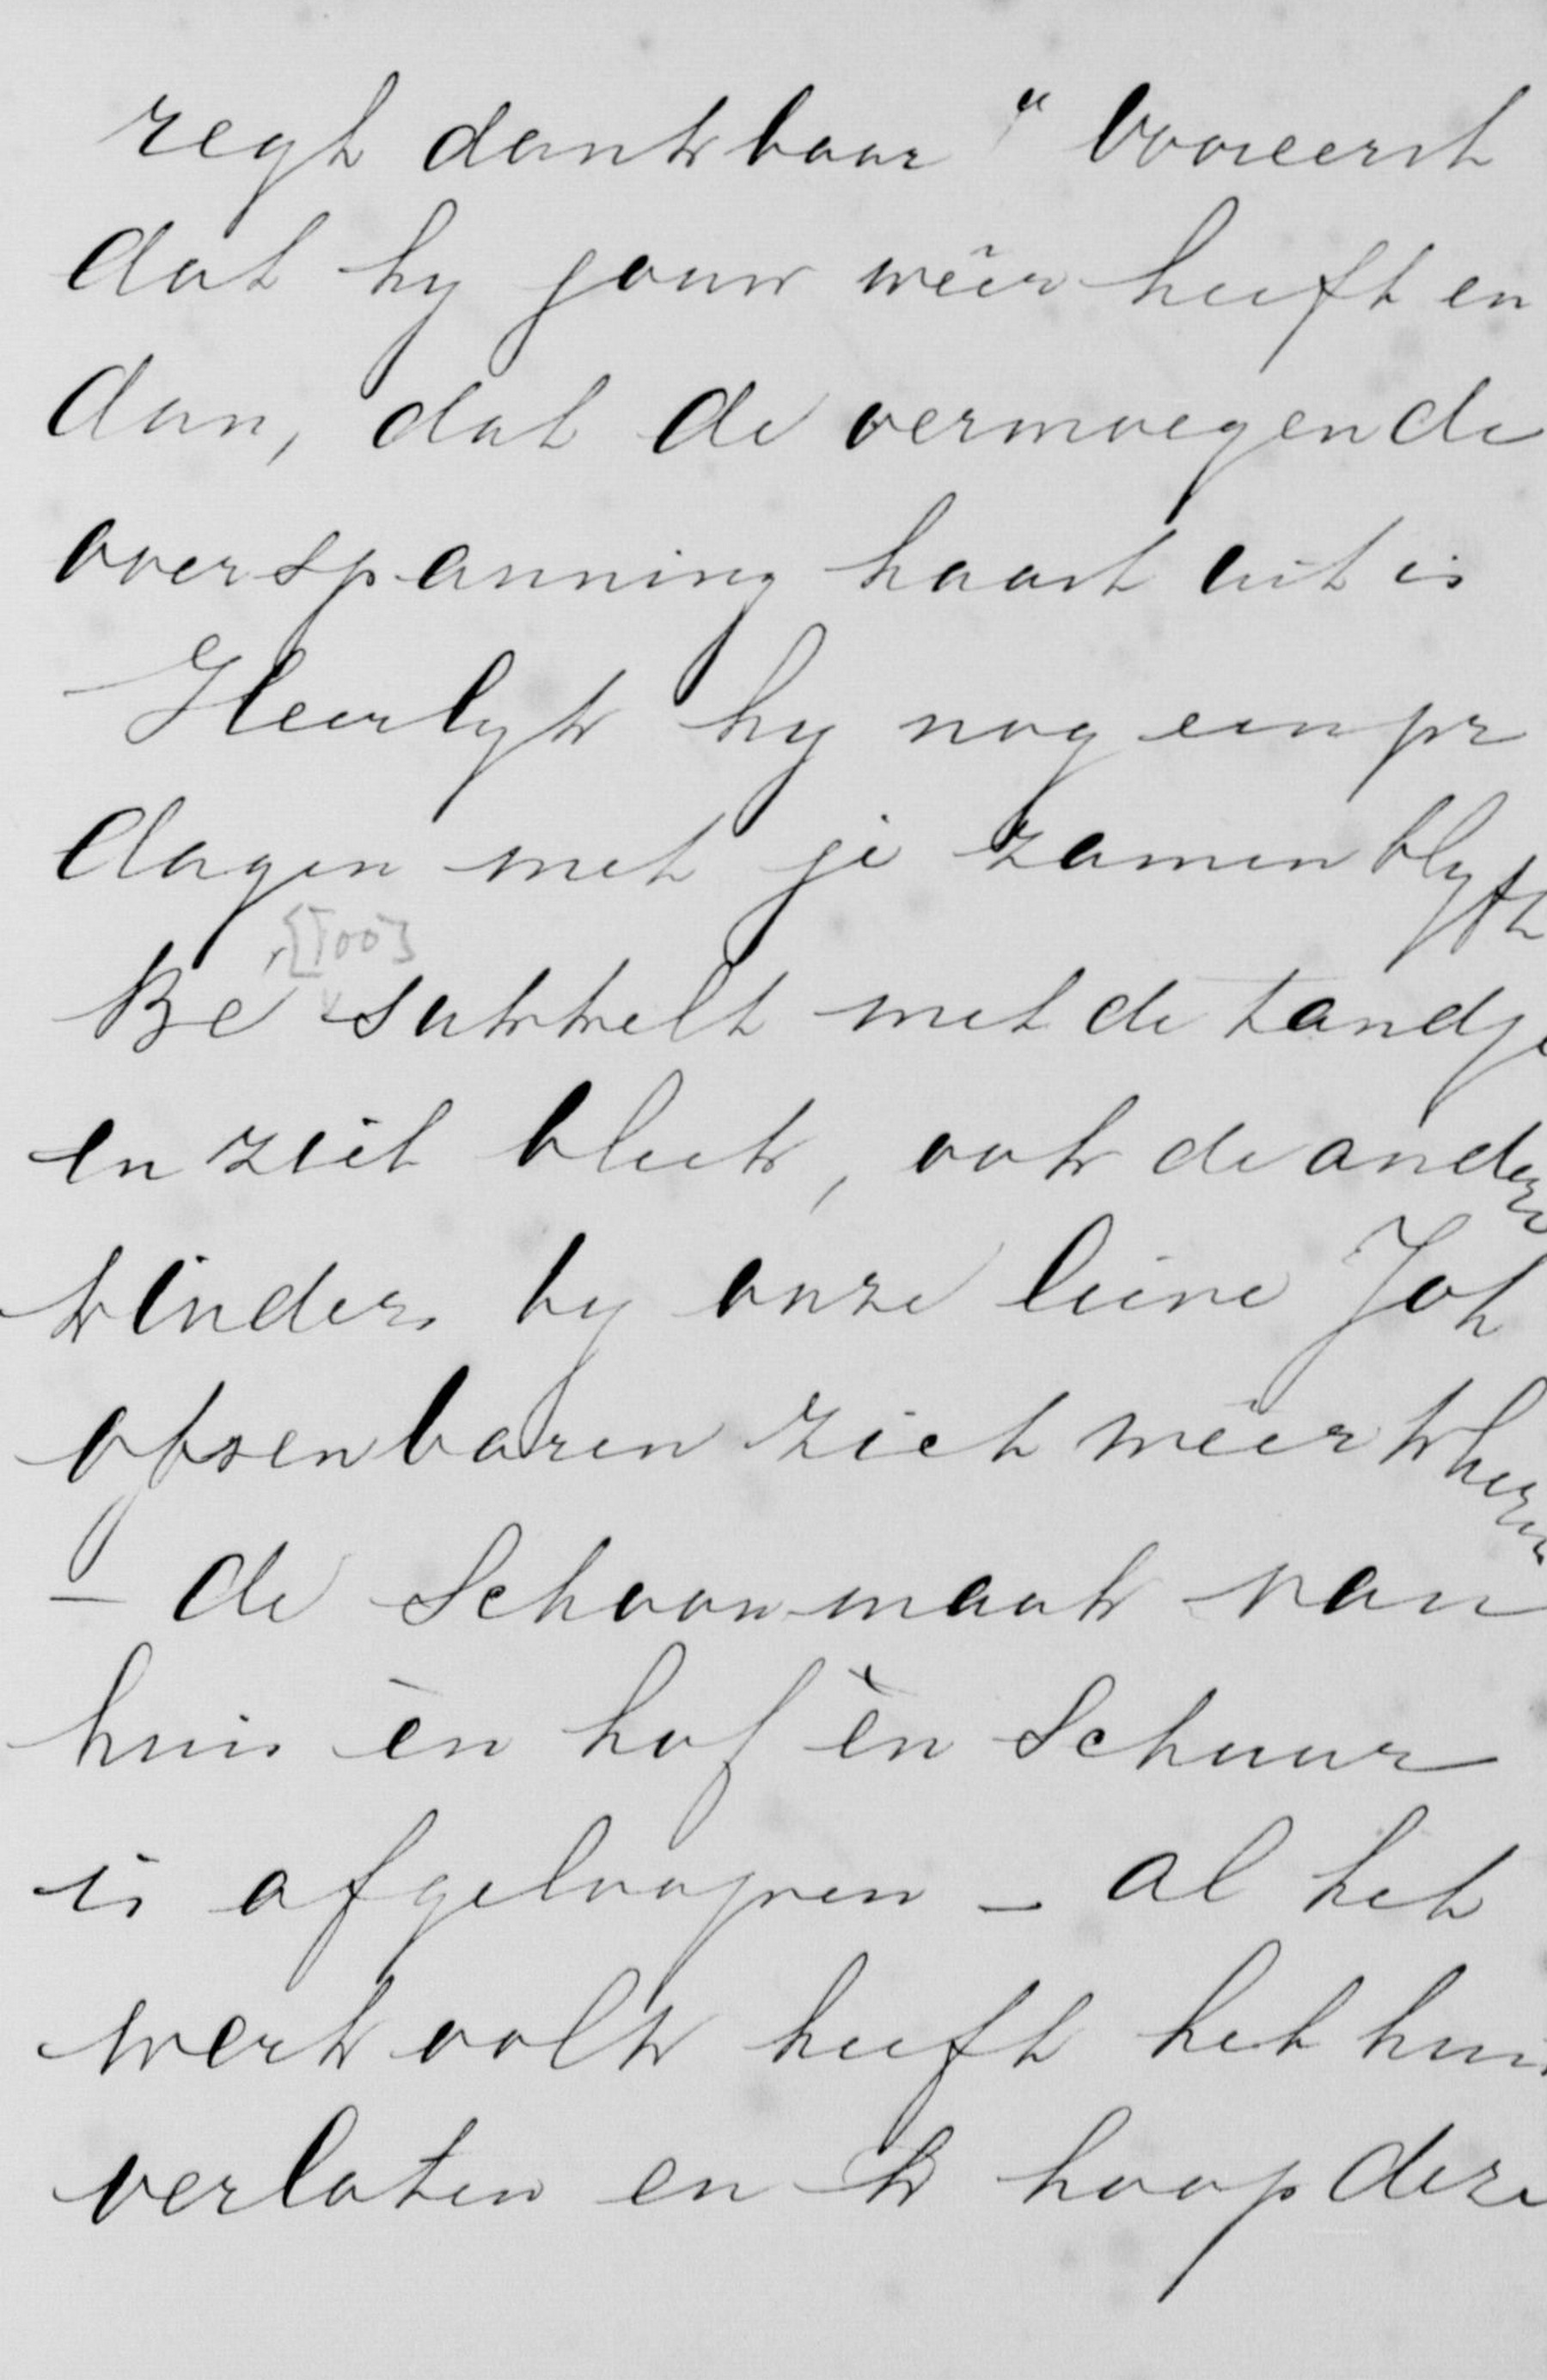 regt dankbaar " vooreerst
dat hy jouw wêer heeft en
dan, dat de vermoeyende
overspanning haast uit is
Heerlyk hy nog een pr
dagen met je zamen blyft
Be sukkelt met de tandje
[Too]
en ziet bleek, ook de andere
kinders by onze lieve Joh
openbaren zich mêer klieren
– de Schoonmaak van
huis èn hof èn Schuur
is afgeloopen – al het
werkvolk heeft het huis
verlaten en k hoop deze